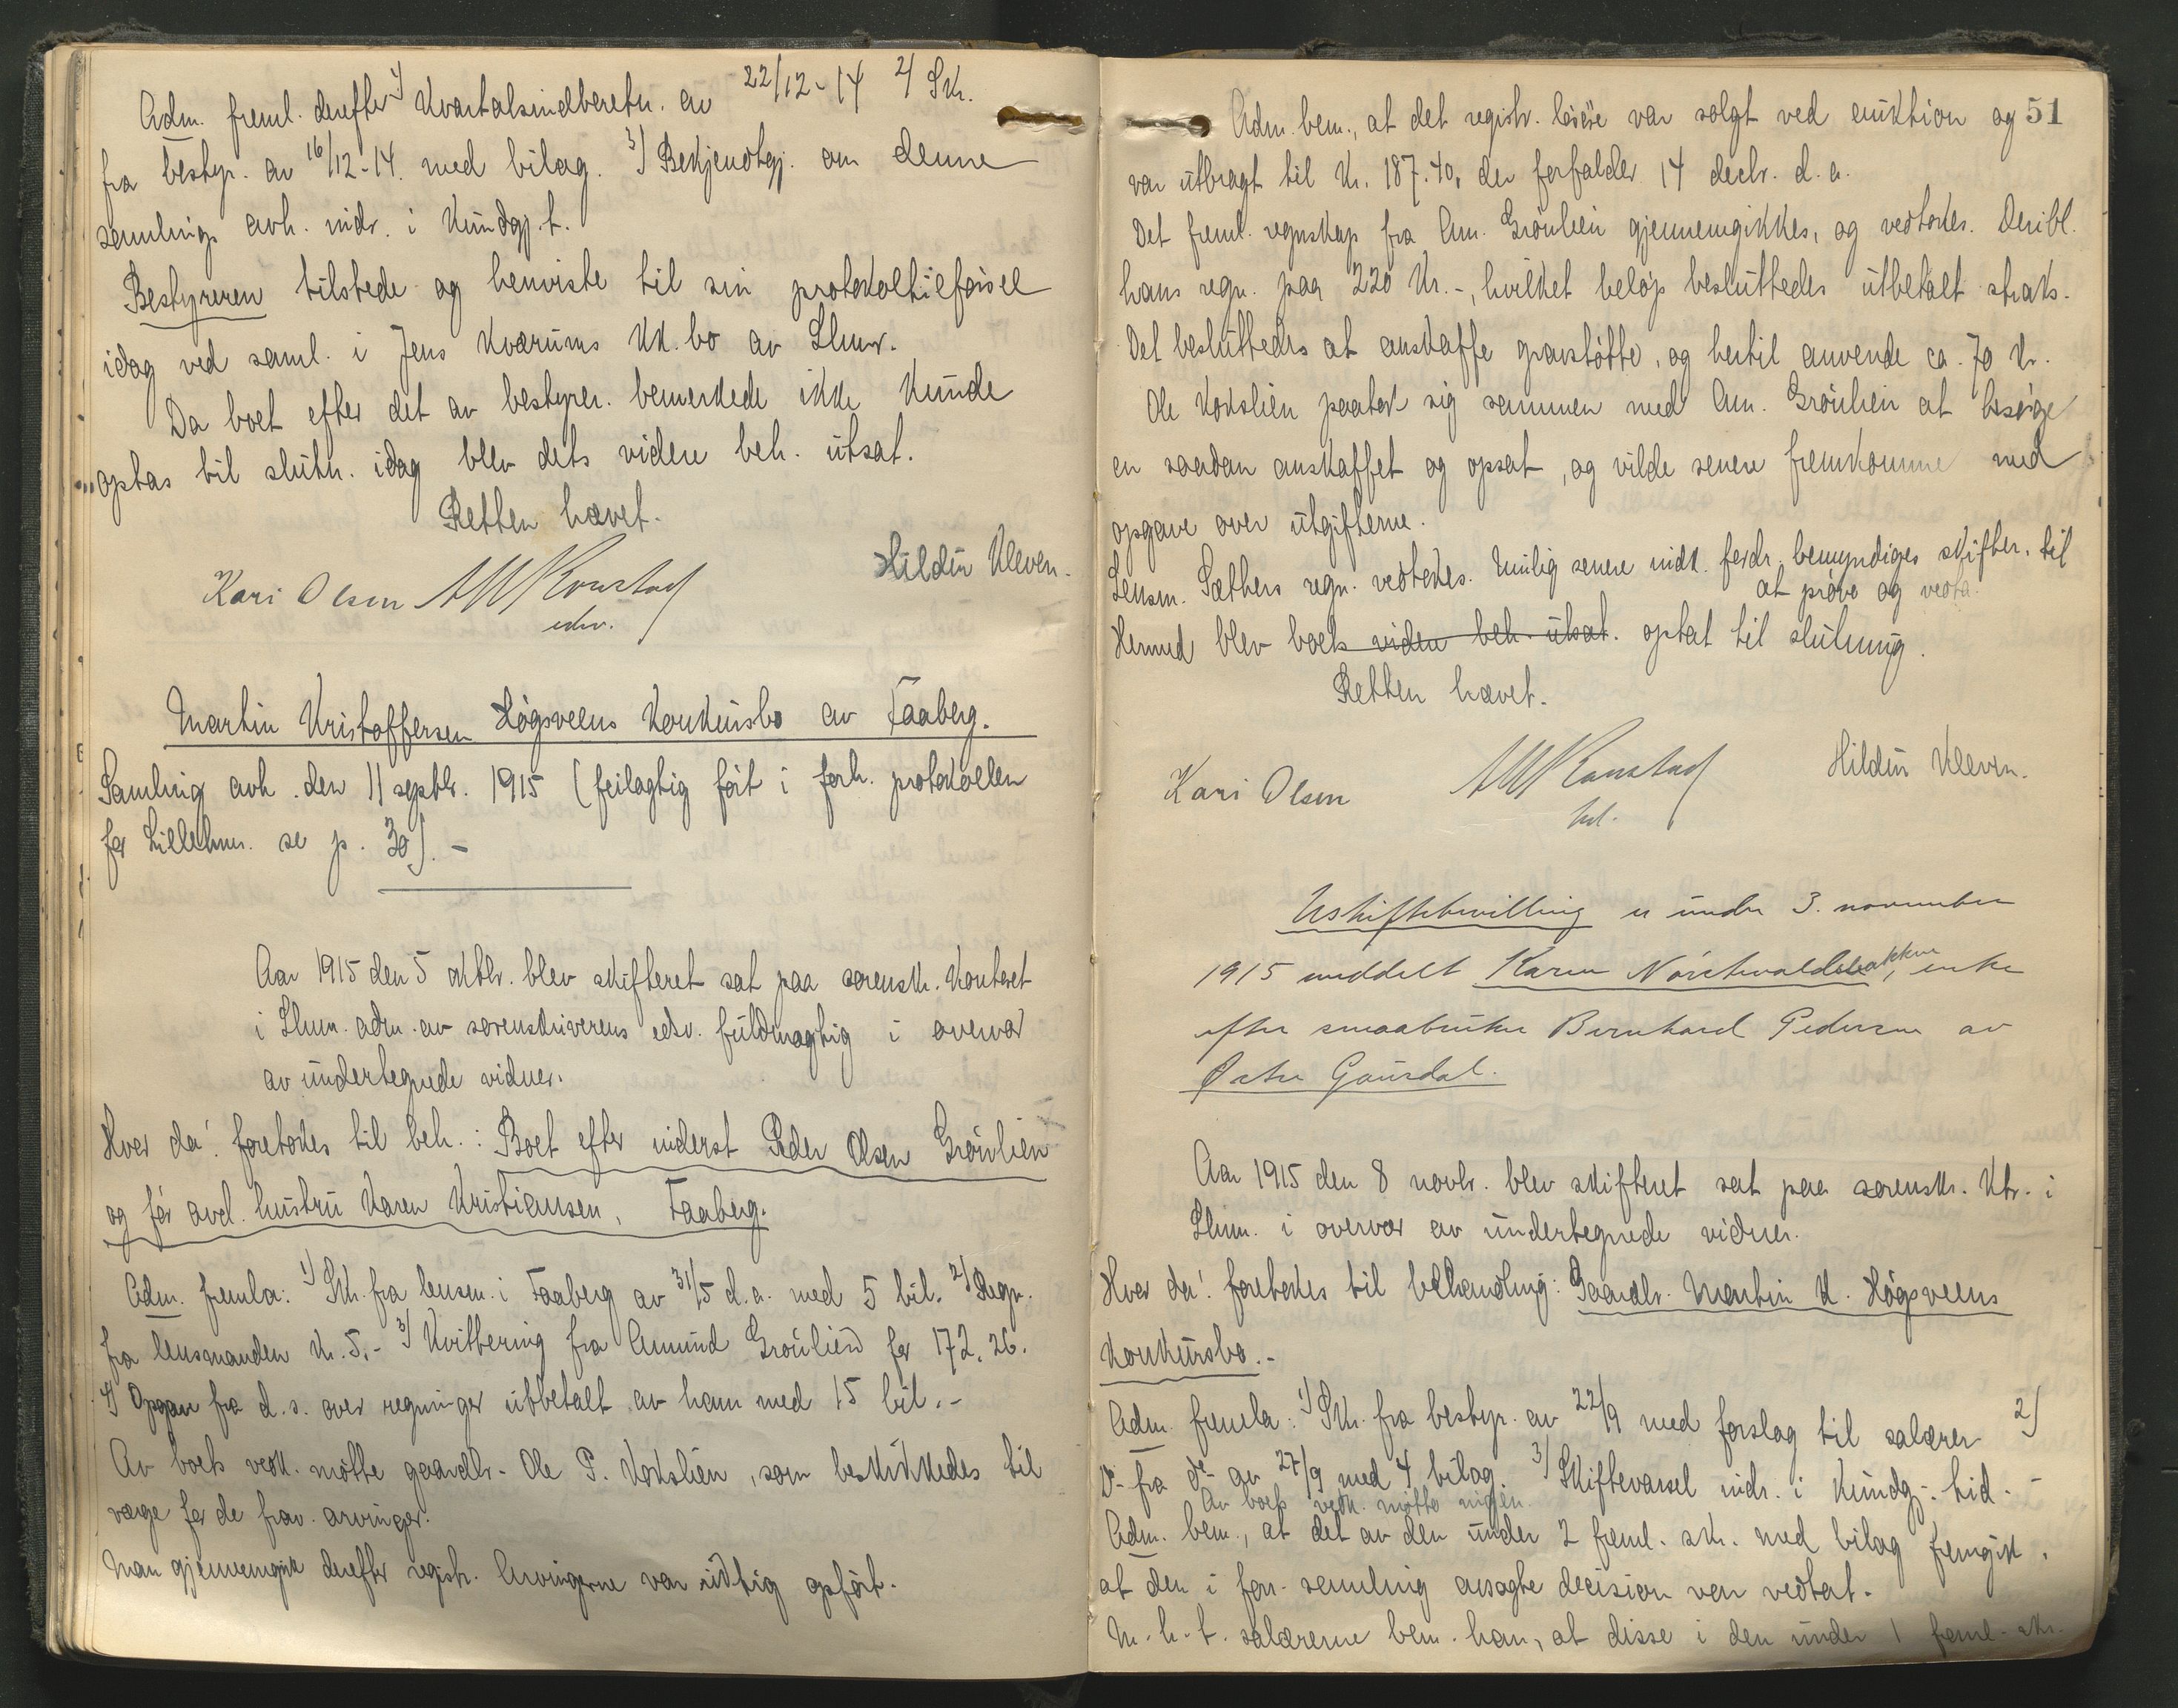 Adm. freml. derefter 1) Kvartalsindberetn. av 22/12-14 2/ Skr.
fra bestyr. av 16/12-14. med bilag. 3) Bekjendtgj. om denne
samlings avh. indr. i Kundgj.t.
Bestyreren tilstede og henviste til sin protokoltilførsel
idag ved saml. i Jens Kværums kk.bo av Lhmr.
Da boet efter det av bestyrer. bemerkede ikke kunde
optas til slutn. idag blev dets videre beh. utsat.
Retten hævet.
Kari Olsen Hildur Kleven.
edsv.
Martin Kristoffersen Høgsveens Konkursbo av Faaberg.
Samling avh. den 11 septbr. 1915 (feilagtig ført i forh. protokollen
for Lillehmr. se p. 30). -
Aar 1915 den 5 oktbr. blev skifteret sat paa sorenskr. kontoret
i Lhmr. adm. av sorenskriverens edsv. fuldmægtig i overvær
av undertegnede vidner.
Hvor da! foretokes til beh.: Boet efter inderst Peder Olsen Grønlien
og før avd. hustru Karen Kristiansen, Faaberg.
Adm. fremla: 1) Skr. fra lensm. i Faaberg av 31/5 d.a. med 5 bil. 2) Regn.
fra lensmanden kr. 5.- 3) Kvittering fra Amund Grønlien for 172.26.
4) Opgave fra d.s. over regninger utbetalt av ham med 15 bil.-
Av boets vedk. møtte gaardbr. Ole P. Kokslien, som beskikkedes til
verge for de frav. arvinger.
Man gjennemgik derefter registr. Arvingerne var riktig opført.
51
Adm. bem., at det registr. løsøre var solgt ved auktion og
var utbragt til kr. 187.40, der forfalder 14 decbr. d.a.
Det freml. regnskap fra Am. Grønlien gjennemgikkes, og vedtokes. Deribl.
hans regn. paa 220 kr.-, hvilket beløp besluttedes utbetalt straks.
Det besluttedes at anskaffe gravstøtte, og hertil anvende ca. 70 kr.
Ole Kokslien paatok sig sammen med Am. Grønlien at besørge
en saadan anskaffet og opsat, og vilde senere fremkomme med
opgave over utgifterne.
Lensm. Sæthers regn. vedtokes. Mulig senere indk. fordr. bemyndiges skifter. til
at prøve og vedta.
Hermed blev boets videre beh. utsat. optat til slutning.
Retten hævet.
Kari Olsen Hildur Kleven.
Uskiftebevilling er under 3. november
1915 meddelt Karen Nørstevoldsbakken, enke
efter smaabruker Bernhard Pedersen av
Østre Gausdal.
Aar 1915 den 8 novbr. blev skifteret sat paa sorenskr. ktr. i
Lhmr. i overvær av undertegnede vidner.
Hvor da! foretokes til behandling: Gaardbr. Martin K. Høgsveens
Konkursbo.-
Adm. fremla: 1) Skr. fra bestyr. av 22/9 med forslag til salærer 2)
Do fra do av 27/9 med 4 bilag. 3) Skiftevarsel indr. i Kundgj. tid.-
Av boets vedk. møtte ingen.
Adm. bem., at det av den under 2 freml. skr. med bilag fremgik,
at den i forr. samling avsagte decision var vedtat.
M.h.t. salærerne bem. han, at disse i den under 1 freml. skr.